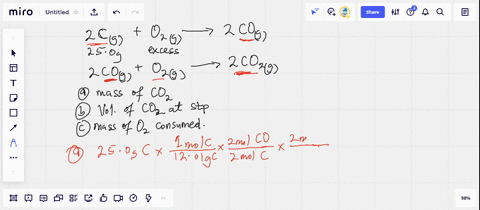 miro Untitled Share
2C(g) + O2(g) → 2CO(g)
25.0g excess
2CO(g) + O2(g) → 2CO2(g)
(a) mass of CO2
(b) Vol. of CO2 at stp
(c) mass of O2 consumed.
(a) 25.0g C × 1molC/12.01gC × 2mol CO/2mol C × 2m
98%